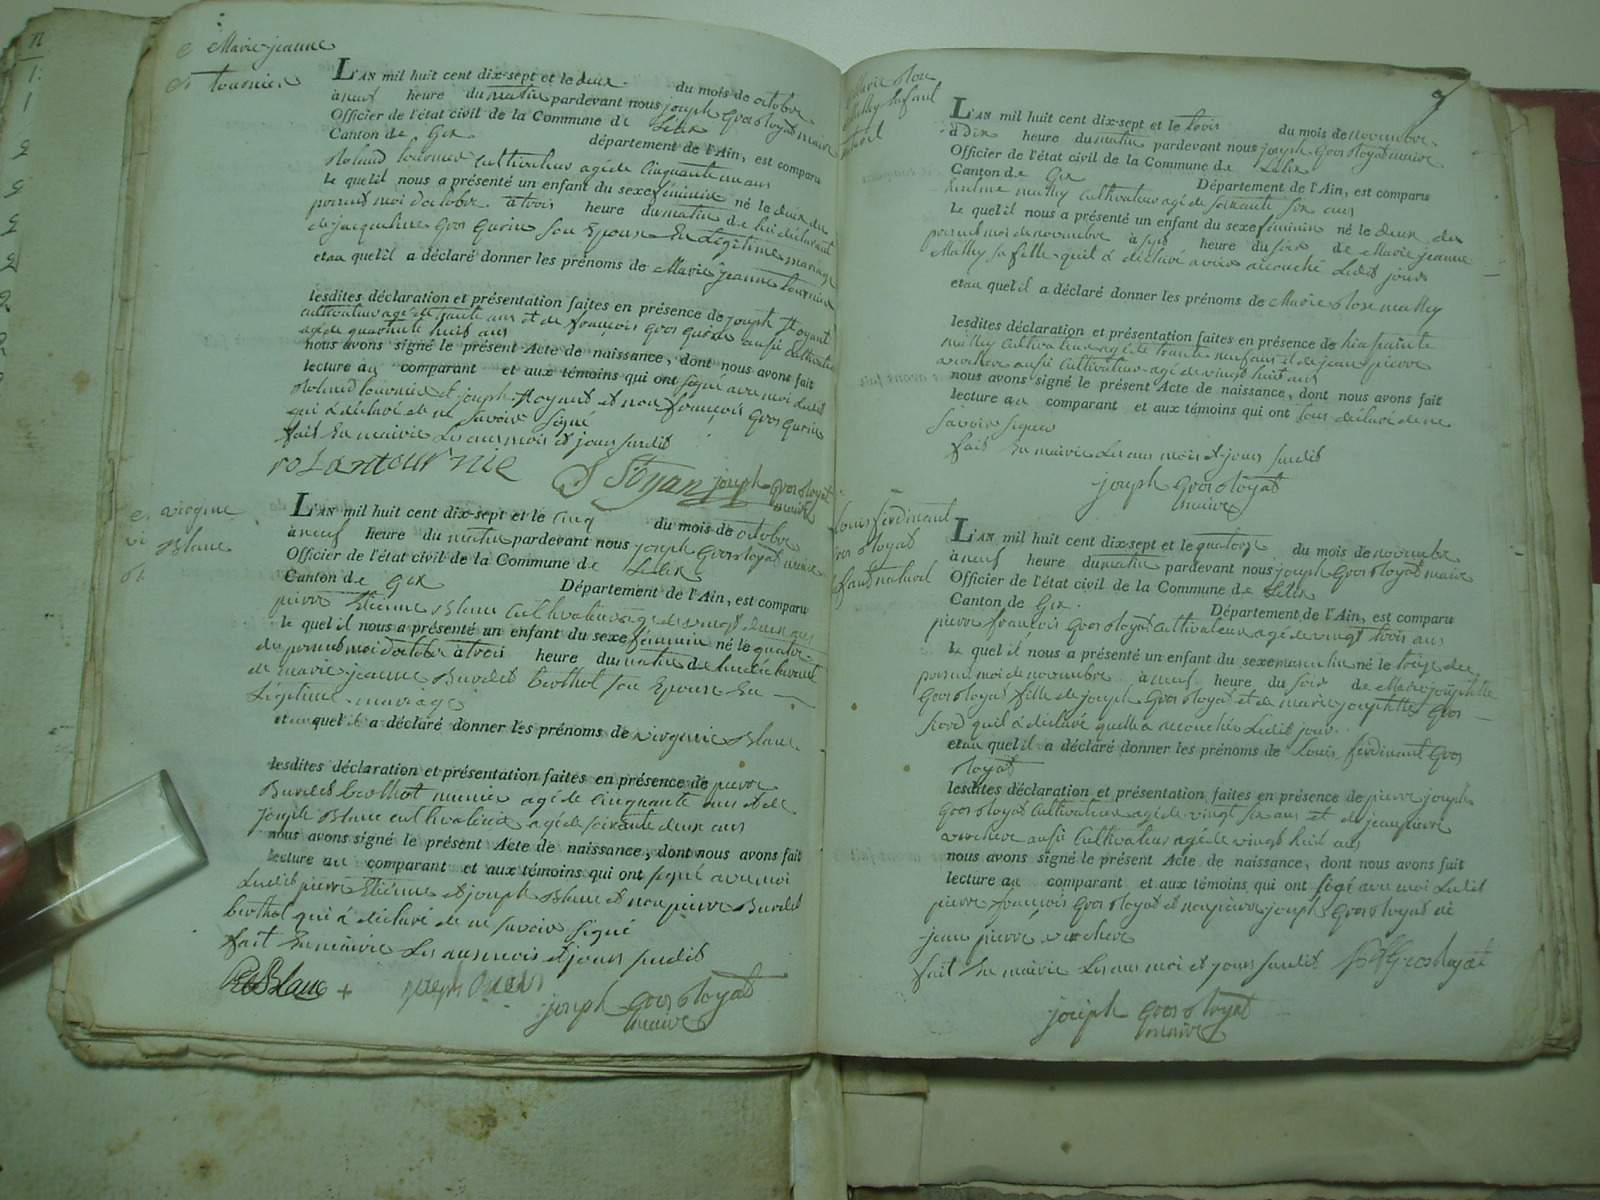 Marie jeanne
tournier
L'AN mil huit cent dix-sept et le deux du mois de octobre
à neuf heure du matin pardevant nous joseph Gros Royat maire
Officier de l'état civil de la Commune de Lelex
Canton de Gex département de l'Ain, est comparu
Roland tournier cultivateur agé de cinquante un ans
le quel il nous a présenté un enfant du sexe féminin né le deux du
présent moi d'octobre à trois heure du matin de lui déclarant
de jacqueline Gros Gurin son Epouse En Légitime mariage
et au quel il a déclaré donner les prénoms de Marie jeanne tournier
lesdites déclaration et présentation faites en présence de joseph
cultivateur agé de ans et de françois Gros Gurin aussi cultivateur
agé de quarante huit ans
nous avons signé le présent Acte de naissance, dont nous avons fait
lecture au comparant et aux témoins qui ont signé avec moi Ledit
Roland tournier et joseph et non françois Gros Gurin
qui à déclaré de ne savoir signé
fait En mairie Les ans mois et jours susdit
rolantournie joseph Gros Royat
maire
virginie
Blanc
L'AN mil huit cent dix-sept et le cinq du mois de octobre
à neuf heure du matin pardevant nous joseph Gros Royat maire
Officier de l'état civil de la Commune de Lelex
Canton de Gex Département de l'Ain, est comparu
pierre Etienne Blanc cultivateur agé de vingt deux ans
le quel il nous a présenté un enfant du sexe féminin né le quatre
du présent moi d'octobre à trois heure du matin de lui déclarant
de marie jeanne Burdet berthot son Epouse En
Légitime mariage
et au quel il a déclaré donner les prénoms de virginie Blanc
lesdites déclaration et présentation faites en présence de pierre
Burdet berthot munier agé de cinquante ans et de
joseph Blanc cultivateur agé de soixante deux ans
nous avons signé le présent Acte de naissance, dont nous avons fait
lecture au comparant et aux témoins qui ont signé avec moi
Ledit pierre Etienne et joseph Blanc et non pierre Burdet
berthot qui à déclaré de ne savoir signé
fait En mairie Les ans mois et jours susdit
Blanc + joseph
joseph Gros Royat
maire
Marie Rose
Mathy Enfant
naturel
L'AN mil huit cent dix-sept et le trois du mois de novembre
à Dix heure du matin pardevant nous joseph Gros Royat maire
Officier de l'état civil de la Commune de Lelex
Canton de Gex Département de l'Ain, est comparu
mathy Cultivateur agé de soixante six ans
le quel il nous a présenté un enfant du sexe féminin né le deux du
présent moi de novembre à sept heure du soir de Marie jeanne
Mathy sa fille quil à déclaré avoir accouché Ledit jour
et au quel il a déclaré donner les prénoms de Marie Rose mathy
lesdites déclaration et présentation faites en présence de
mathy Cultivateur agé de trante neuf ans et de jean pierre
verchere aussi Cultivateur agé de vingt huit ans
nous avons signé le présent Acte de naissance, dont nous avons fait
lecture au comparant et aux témoins qui ont tous déclaré de ne
savoir signer
fait En mairie Les ans mois et jours susdit
joseph Gros Royat
maire
Louis ferdinand
Gros Royat
Enfant naturel
L'AN mil huit cent dix-sept et le quatorze du mois de novembre
à neuf heure du matin pardevant nous joseph Gros Royat maire
Officier de l'état civil de la Commune de Lelex
Canton de Gex. Département de l'Ain, est comparu
pierre françois Gros Royat Cultivateur agé de vingt trois ans
le quel il nous a présenté un enfant du sexe masculin né le treize du
présent moi de novembre à neuf heure du soir de Marie josephtte
Gros Royat fille de joseph Gros Royat et de marie josephtte Gros
quil à déclaré quelle à accouchée Ledit jour.
et au quel il a déclaré donner les prénoms de Louis ferdinand Gros
Royat
lesdites déclaration et présentation faites en présence de pierre joseph
Gros Royat Cultivateur agé de vingt six ans et de jean pierre
verchere aussi Cultivateur agé de vingt huit ans
nous avons signé le présent Acte de naissance, dont nous avons fait
lecture au comparant et aux témoins qui ont sigé avec moi Ledit
pierre françois Gros Royat et non pierre joseph Gros Royat ni
jean pierre verchere
fait En mairie Les ans moi et jours susdit
joseph Gros Royat
maire